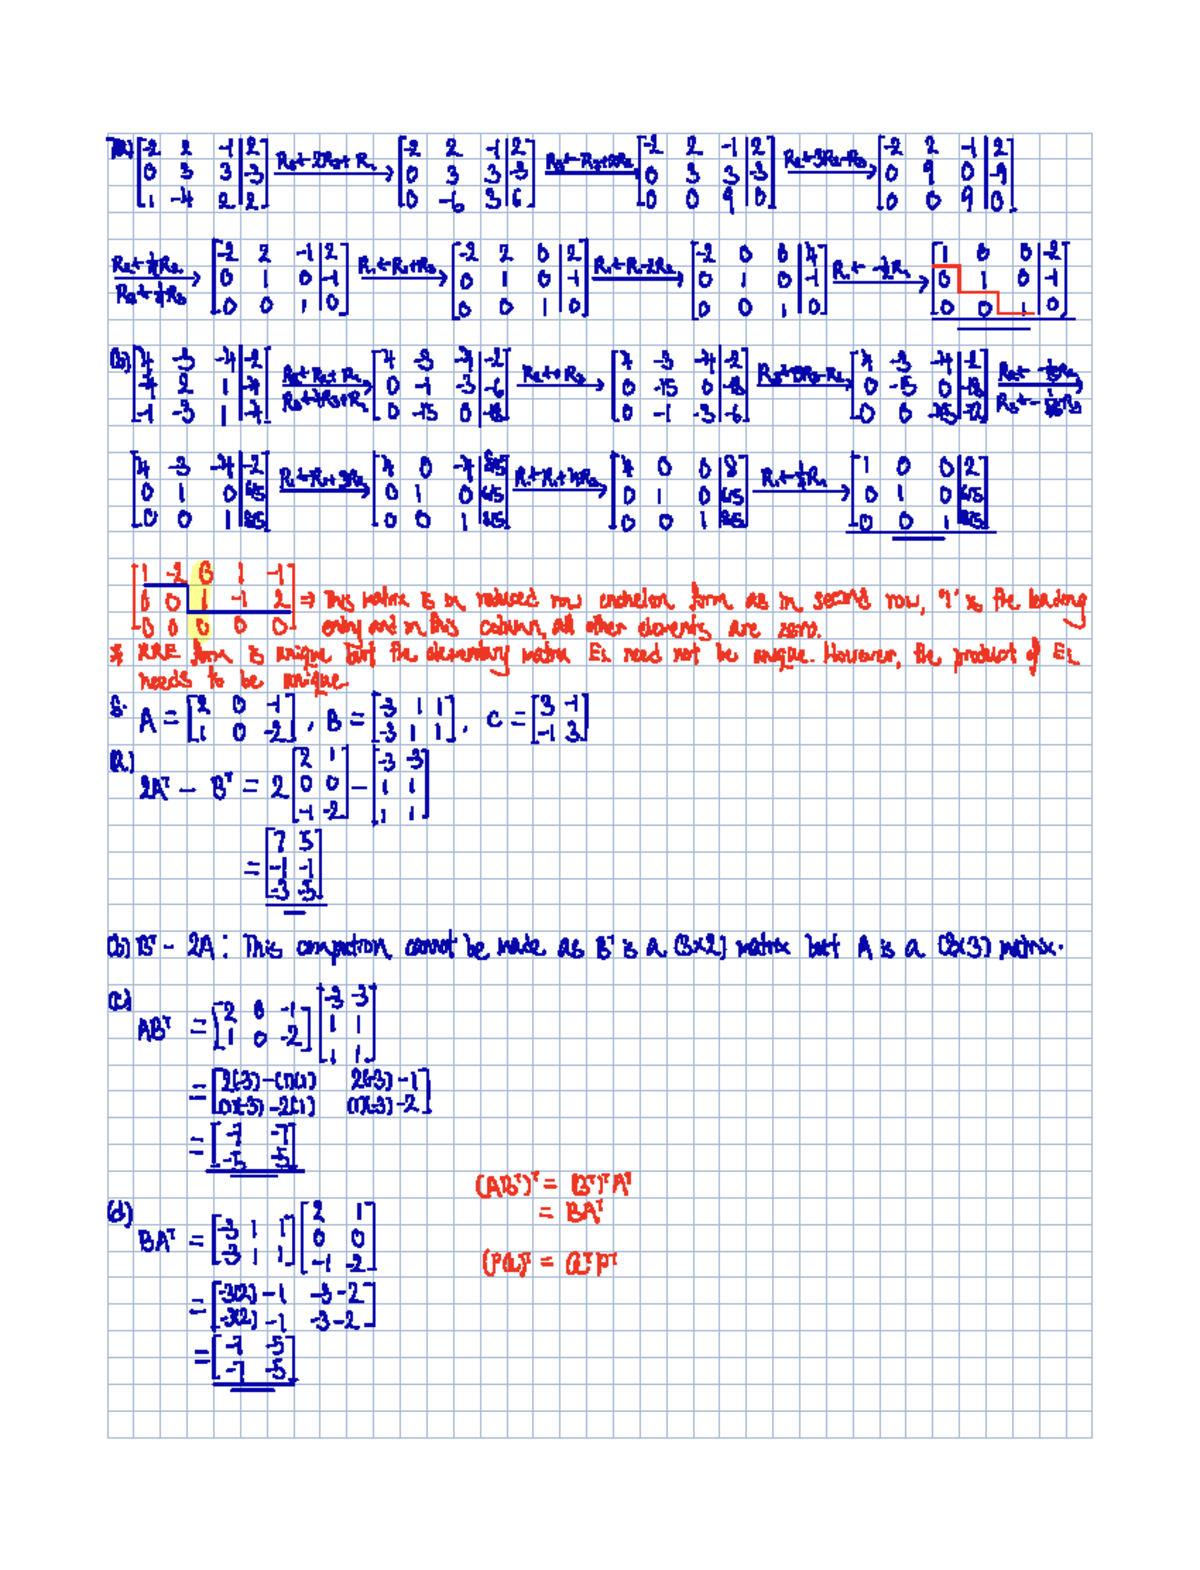 7(a) [-2 2 -1 | 2; 0 3 3 | -3; 1 -4 2 | 2] R3←2R3+R1 → [-2 2 -1 | 2; 0 3 3 | -3; 0 -6 3 | 6] R3←R3+2R2 → [-2 2 -1 | 2; 0 3 3 | -3; 0 0 9 | 0] R2←3R2-R3 → [-2 2 -1 | 2; 0 9 0 | -9; 0 0 9 | 0]
R2←1/9R2 R3←1/9R3 → [-2 2 -1 | 2; 0 1 0 | -1; 0 0 1 | 0] R1←R1+R3 → [-2 2 0 | 2; 0 1 0 | -1; 0 0 1 | 0] R1←R1-2R2 → [-2 0 0 | 4; 0 1 0 | -1; 0 0 1 | 0] R1←-1/2R1 → [1 0 0 | -2; 0 1 0 | -1; 0 0 1 | 0]
(b) [4 -3 -4 | -2; -4 2 1 | -4; -1 -3 1 | -4] R2←R2+R1 R3←4R3+R1 → [4 -3 -4 | -2; 0 -1 -3 | -6; 0 -15 0 | -18] R2↔R3 → [4 -3 -4 | -2; 0 -15 0 | -18; 0 -1 -3 | -6] R3←15R3-R2 → [4 -3 -4 | -2; 0 -15 0 | -18; 0 0 -45 | -72] R2←-1/15R2 R3←-1/45R3 →
[4 -3 -4 | -2; 0 1 0 | 6/5; 0 0 1 | 8/5] R1←R1+3R2 → [4 0 -4 | 8/5; 0 1 0 | 6/5; 0 0 1 | 8/5] R1←R1+4R3 → [4 0 0 | 8; 0 1 0 | 6/5; 0 0 1 | 8/5] R1←1/4R1 → [1 0 0 | 2; 0 1 0 | 6/5; 0 0 1 | 8/5]
[1 -2 0 1 -1; 0 0 1 -1 2; 0 0 0 0 0] ⇒ This matrix is in reduced row enchelon form as in second row, "1" is the leading
entry and in this column, all other elements are zero.
* RRE form is unique but the elementary matrix Ei need not be unique. However, the product of Ei
needs to be unique.
8. A = [2 0 -1; 1 0 -2], B = [-3 1 1; -3 1 1], C = [3 -1; -1 3]
(a)
2Aᵀ - Bᵀ = 2[2 1; 0 0; -1 -2] - [-3 -3; 1 1; 1 1]
= [7 5; -1 -1; -3 -5]
(b) Bᵀ - 2A: This compution cannot be made as Bᵀ is a (3x2) matrix but A is a (2x3) matrix.
(c)
ABᵀ = [2 0 -1; 1 0 -2][-3 -3; 1 1; 1 1]
= [2(-3)-(1)(1) 2(-3)-1; (1)(-3)-2(1) (1)(-3)-2]
= [-7 -7; -5 -5]
(ABᵀ)ᵀ = (Bᵀ)ᵀAᵀ
= BAᵀ
(d)
BAᵀ = [-3 1 1; -3 1 1][2 1; 0 0; -1 -2]
(PQ)ᵀ = QᵀPᵀ
= [-3(2)-1 -3-2; -3(2)-1 -3-2]
= [-7 -5; -7 -5]